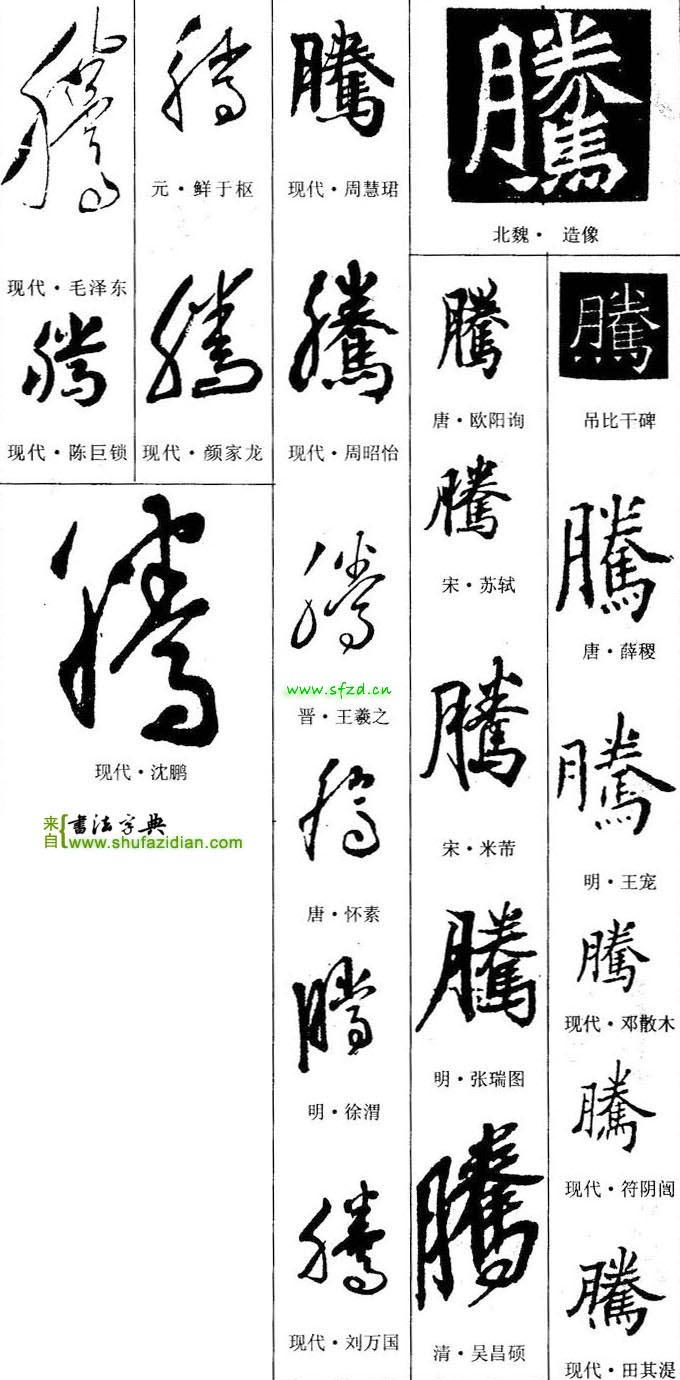 騰
现代・毛泽东
騰
现代・陈巨锁
騰
元・鲜于枢
騰
现代・颜家龙
騰
现代・沈鹏
来自
书法字典
www.shufazidian.com
騰
现代・周慧珺
騰
现代・周昭怡
騰
www.sfzd.cn
晋・王羲之
騰
唐・怀素
騰
明・徐渭
騰
现代・刘万国
騰
北魏・ 造像
騰
唐・欧阳询
騰
宋・苏轼
騰
宋・米芾
騰
明・张瑞图
騰
清・吴昌硕
騰
吊比干碑
騰
唐・薛稷
騰
明・王宠
騰
现代・邓散木
騰
现代・符阴闿
騰
现代・田其湜